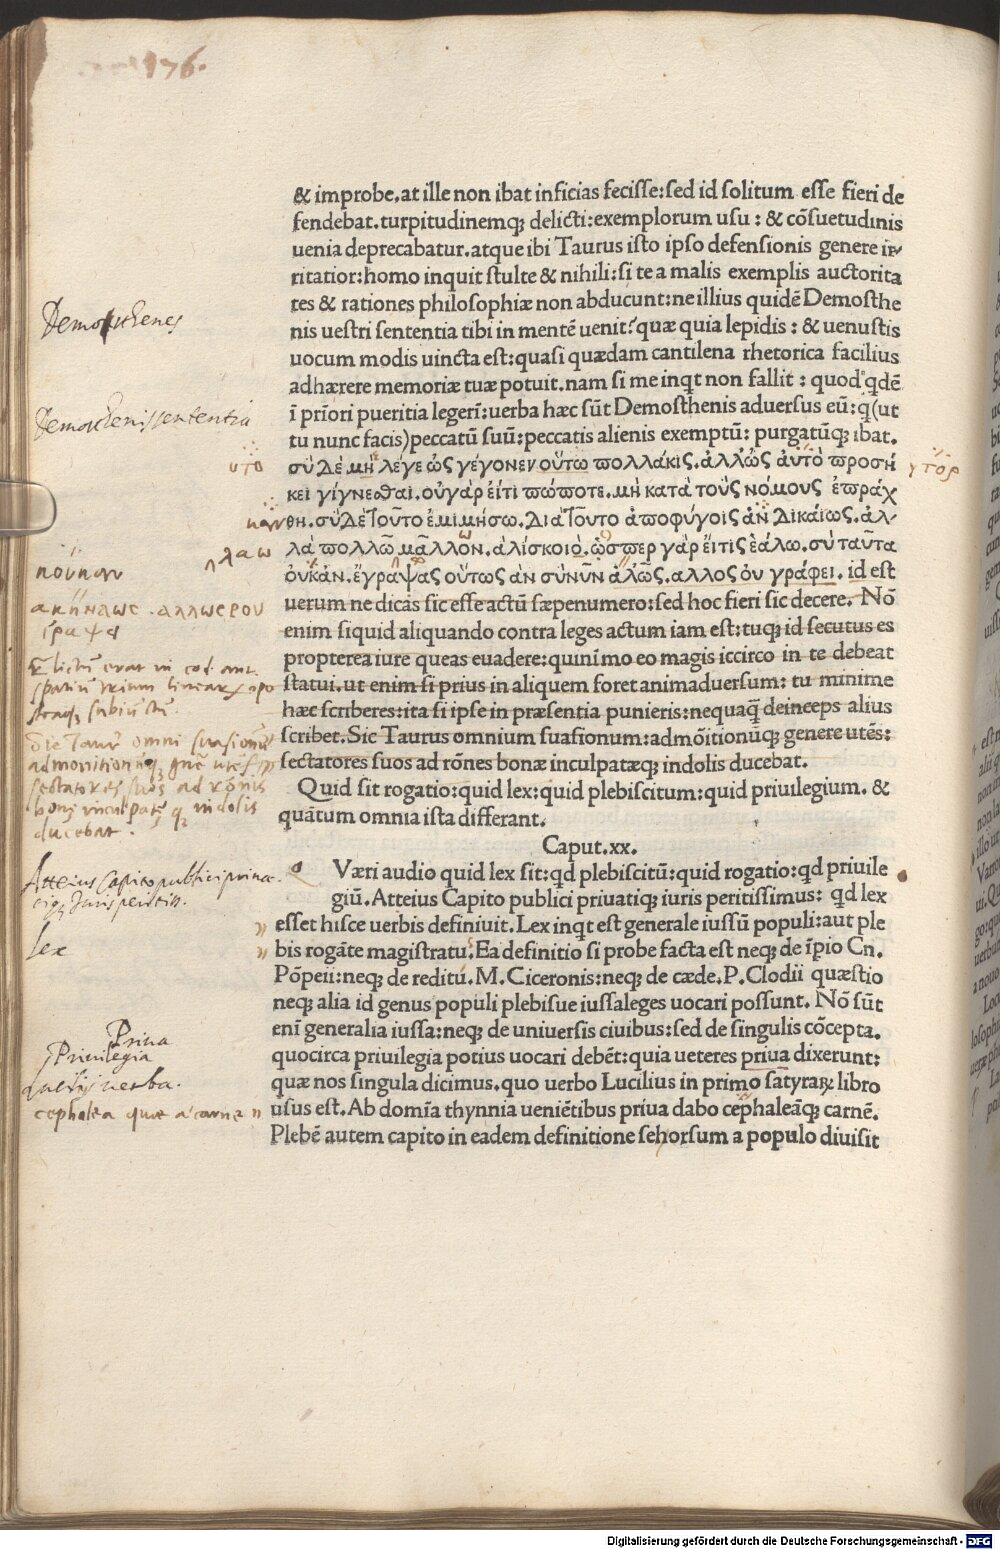 176.
& improbe.at ille non ibat inficias fecisse:sed id solitum esse fieri de
fendebat.turpitudinemq; delicti:exemplorum usu : & cōsuetudinis
uenia deprecabatur.atque ibi Taurus isto ipso defensionis genere ir-
ritatior:homo inquit stulte & nihili:si te a malis exemplis auctorita
tes & rationes philosophiæ non abducunt:ne illius quidē Demosthe
nis uestri sententia tibi in mentē uenit?quæ quia lepidis : & uenustis
uocum modis uincta est:quasi quædam cantilena rhetorica facilius
adhærere memoriæ tuæ potuit.nam si me inqt non fallit : quod qdē
ī priori pueritia legerī:uerba hæc sūt Demosthenis aduersus eū:q(ut
tu nunc facis)peccatū suū:peccatis alienis exemptū: purgatūq; ibat.
σὺ Δὲ μὴ λέγε ὡς γέγονεν οὕτω πολλάκις.ἀλλῶς ἀυτὸ προσή
κει γίγνεσθαι.ουγὰρ ἐίτι πώποτε.μὴ κατὰ τοὺς νόμους ἐπράχ
θη.σὺ Δὲ Τοῦτο ἐμιμήσω.Διὰ Τοῦτο ἀποφύγοις ἂν Δικάιως.ἀλ-
λὰ πολλῶ μᾶλλον.ἁλίσκοιο.ὥσπερ γὰρ ἔιτις ἐάλω.σὺ ταῦτα
ὀυκἄν.ἔγραψας οὕτως ἂν σὺ νῦν ἁλῶς.αλλος ὀυ γράφει. id est
uerum ne dicas sic esse actū sæpenumero:sed hoc fieri sic decere. Nō
enim siquid aliquando contra leges actum iam est:tuq; id secutus es
propterea iure queas euadere:quinīmo eo magis iccirco in te debeat
statui.ut enim si prius in aliquem foret animaduersum: tu minime
hæc scriberes:ita si ipse in præsentia punieris:nequaq̄ deinceps alius
scribet.Sic Taurus omnium suasionum:admōitionūq; genere utēs:
sectatores suos ad rōnes bonæ inculpatæq; indolis ducebat.
Quid sit rogatio:quid lex:quid plebiscitum:quid priuilegium. &
quātum omnia ista differant.
Caput.xx.
q Væri audio quid lex sit:qd plebiscitū:quid rogatio:qd priuile
giū.Atteius Capito publici priuatiq; iuris peritissimus: qd lex
esset hisce uerbis definiuit.Lex inqt est generale iussū populi:aut ple
bis rogāte magistratu.Ea definitio si probe facta est neq; de īpio Cn.
Pōpeii:neq; de reditu.M.Ciceronis:neq; de cæde.P.Clodii quæstio
neq; alia id genus populi plebisue iussaleges uocari possunt. Nō sūt
enī generalia iussa:neq; de uniuersis ciuibus:sed de singulis cōcepta.
quocirca priuilegia potius uocari debēt:quia ueteres priua dixerunt:
quæ nos singula dicimus.quo uerbo Lucilius in primo satyraꝝ libro
usus est.Ab domīa thynnia ueniētibus priua dabo cephaleāq; carnē.
Plebē autem capito in eadem definitione sehorsum a populo diuisit
Demosthenes
Demosthenis sententia
υτο
γτὸρ
λαω
ακηναως . αλλωςεου
γραψα
Sic Taur omni suasionū
admonitionūq; gnē utēs
sectatores suos ad rōnis
bonę inculpatę q; indolis
ducebat.
Atteius Capito publici priua
tiq; Jurisperitiss.
Lex
Priua
Priuilegia
Lucilij uerba.
cephalea quæ a carne
Digitalisierung gefördert durch die Deutsche Forschungsgemeinschaft - DFG